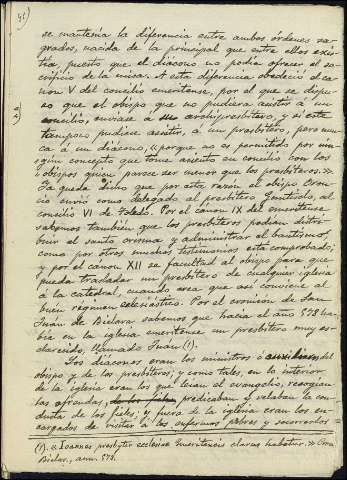 41)
se mantenía la diferencia entre ambos órdenes sa-
grados, nacida de la principal que entre ellos exis-
tía, puesto que el diácono no podía ofrecer el sa-
crificio de la misa. A esta diferencia obedeció el ca-
non V del concilio emeritense, por el que se dispu-
so que el obispo que no pudiera asistir á un
concilio, enviase á un archipresbítero, y si este
tampoco pudiese asistir, á un presbítero, pero nun-
ca á un diácono, «porque no es permitido por nin-
gún concepto que tome asiento en concilio con los
obispos quien parece ser menor que los presbíteros.»
Ya queda dicho que por esta razon el obispo Oron-
cio envió como delegado al presbítero Guntisclo, al
concilio VI de Toledo. Por el cánon IX del emeritense
sabemos tambien que los presbíteros podían distri-
buir el santo crisma y administrar el bautismo,
como por otros muchos testimonios está comprobado;
y por el canon XII se facultad al obispo para que
pueda trasladar un presbítero de cualquier iglesia
á la catedral, cuando crea que asi conviene al
buen régimen eclesiástico. Por el cronicón de San
Juan de Bíclara sabemos que hacia el año 578 ha-
bía en la iglesia emeritense un presbítero muy es-
clarecido, llamado Juan (1).
Los diáconos eran los ministros ó auxiliares del
obispo y de los presbíteros; y como tales, en lo interior
de la iglesia eran los que leían el evangelio, recogían
las ofrendas, de los fieles, predicaban y velaban la con-
ducta de los fieles; y fuera de la iglesia eran los en-
cargados de visitar á los enfermos pobres y socorrerlos
(1). «Ioannes presbyter ecclesiæ Emeritensis clarus habetur.» Cron.
Biclar., ann. 578.